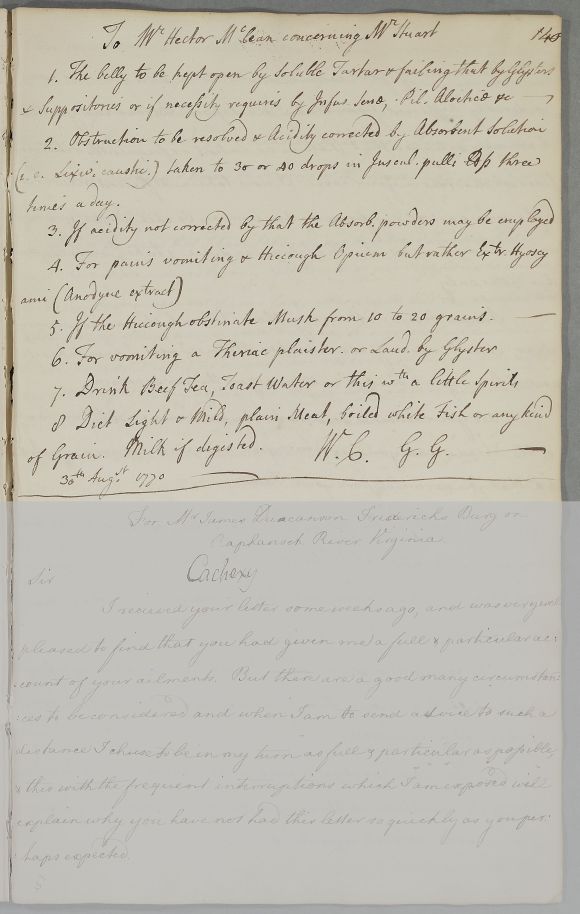 To Mr Hector McLean concerning Mr Stuart 148
1. The belly to be kept open by Soluble Tartar & failing that by Glysters
& Suppositories or if necessity requires by Infus. Senæ, Pil. Aloeticæ &c
2. Obstruction to be resolved & Acidity corrected by Absorbent Solution
(i.e. Lixiv. caustic.) taken to 30 or 40 drops in Juscul. pulli three
times a day.
3. If acidity not corrected by that the Absorb. powders may be employed
4. For pains vomiting & Hiccough Opium but rather Extr. Hyoscy
ami (Anodyne extract)
5. If the Hiccough obstinate Musk from 10 to 20 grains.
6. For vomiting a Theriac plaister. or Laud. by Glyster
7. Drink Beef Tea, Toast Water or this wth a little Spirits
8 Diet Light & Mild, plain Meat, boiled white Fish or any kind
of Grain. Milk if digested. W. C. G. G.
30th Augst 1770
For Mr James Duncanson Fredericks Burg on
River Virginia
Cachexy
Sir
I recieved your letter some weeks ago, and was very well
pleased to find that you had given me a full & particular ac:
:count of your ailments. But there are a good many circumstan:
:ces to be considered and when I am to send advice to such a
distance I chuse to be in my turn as full & particular as possible,
& this with the frequent interruptions which I am exposed will
explain why you have not had this letter so quickly as you per:
:haps expected.